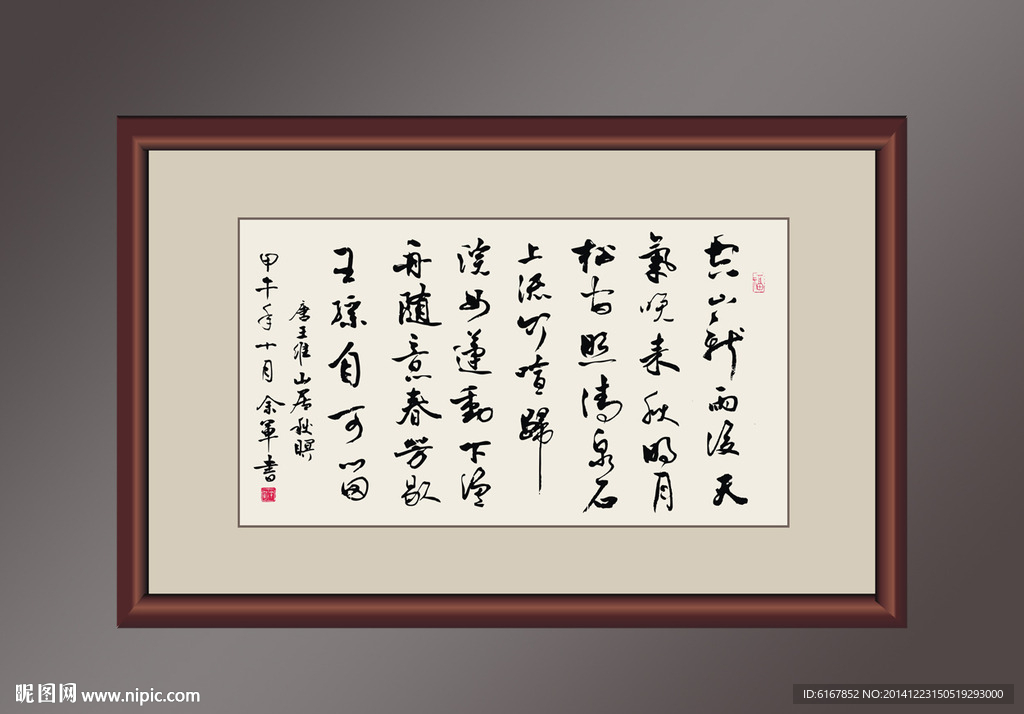 空山新雨後天
氣晚来秋明月
松間照清泉石
上流竹喧歸
浣女蓮動下漁
舟随意春芳歇
王孫自可留
唐王維山居秋暝
甲午年十月余軍書
昵图网 www.nipic.com
ID:6167852 NO:20141223150519293000